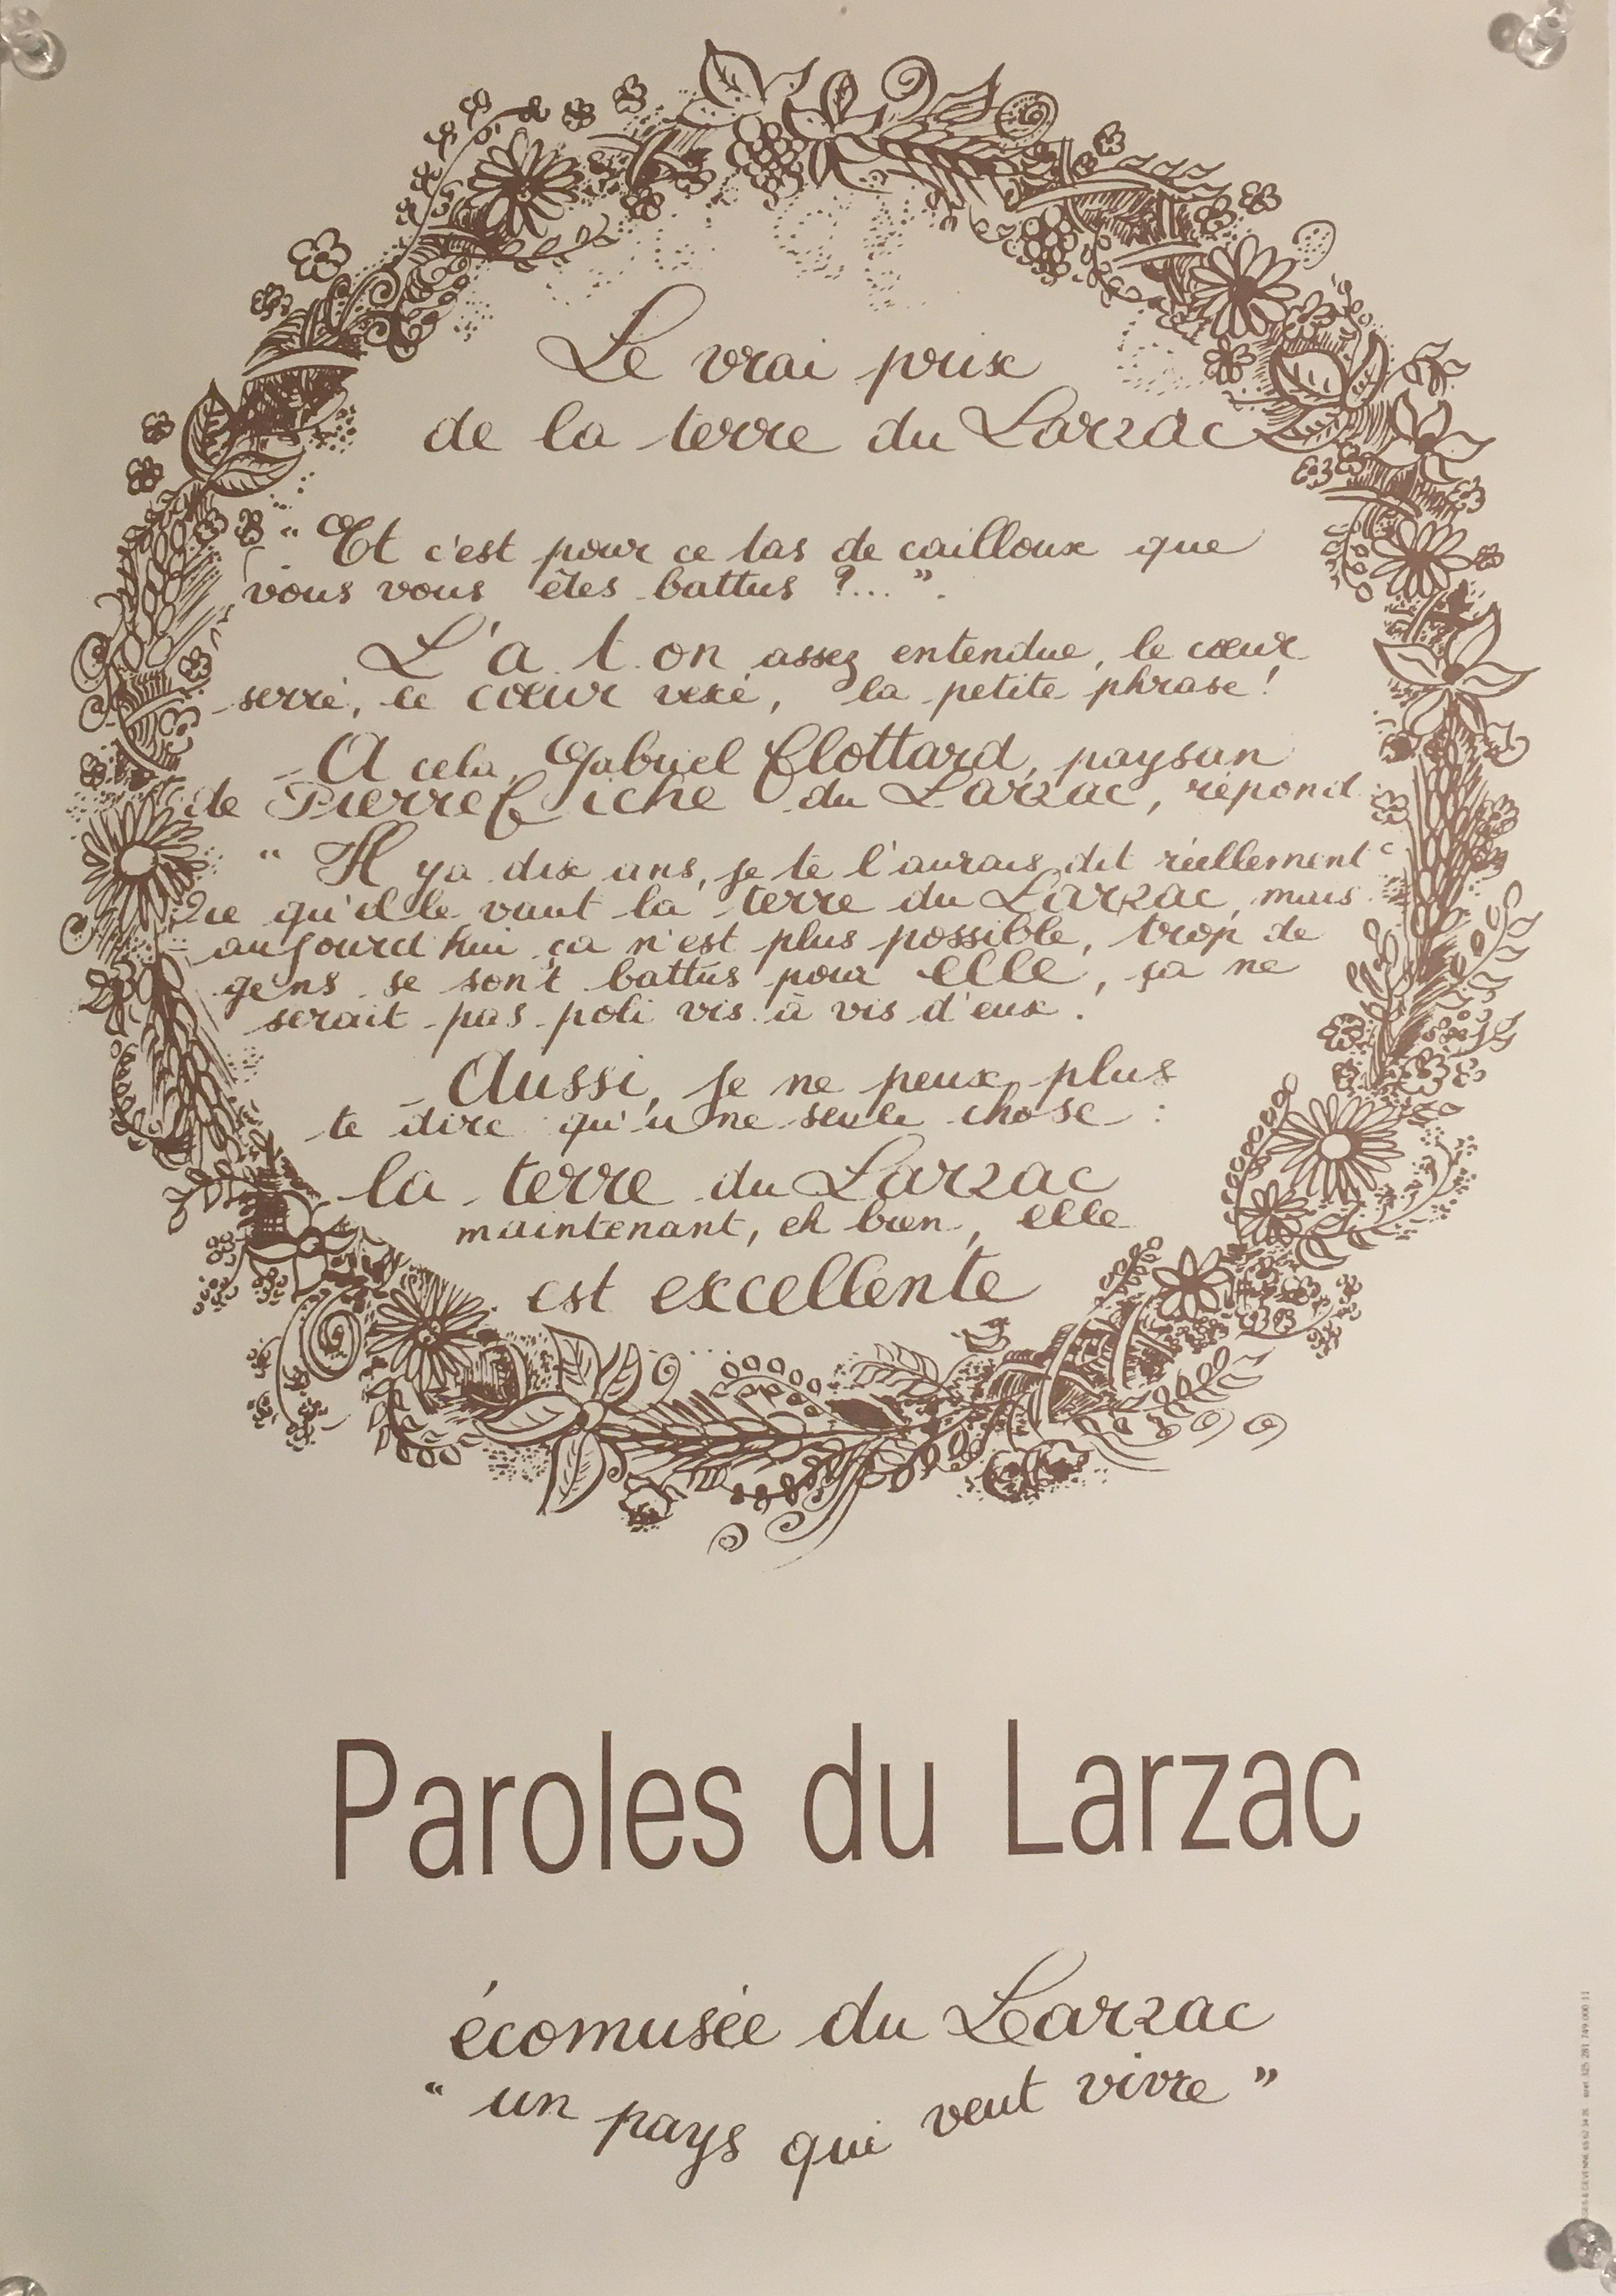 Le vrai prix
de la terre du Larzac
" Et c'est pour ce tas de cailloux que
vous vous êtes battus ?... ".
L'a t. on assez entendue, le cœur
serré, le cœur vexé, la petite phrase !
_ A cela, Gabriel Clottard, paysan
de Pierrefiche du Larzac, répond
" Il y a dix ans, je te l'aurais dit réellement
ce qu'elle vaut la terre du Larzac, mais
aujourd'hui ça n'est plus possible, trop de
gens se sont battus pour elle, ça ne
serait pas poli vis à vis d'eux.
_ Aussi, je ne peux plus
te dire qu'une seule chose :
la terre du Larzac
maintenant, eh bien, elle
est excellente
Paroles du Larzac
écomusée du Larzac
" un pays qui veut vivre "